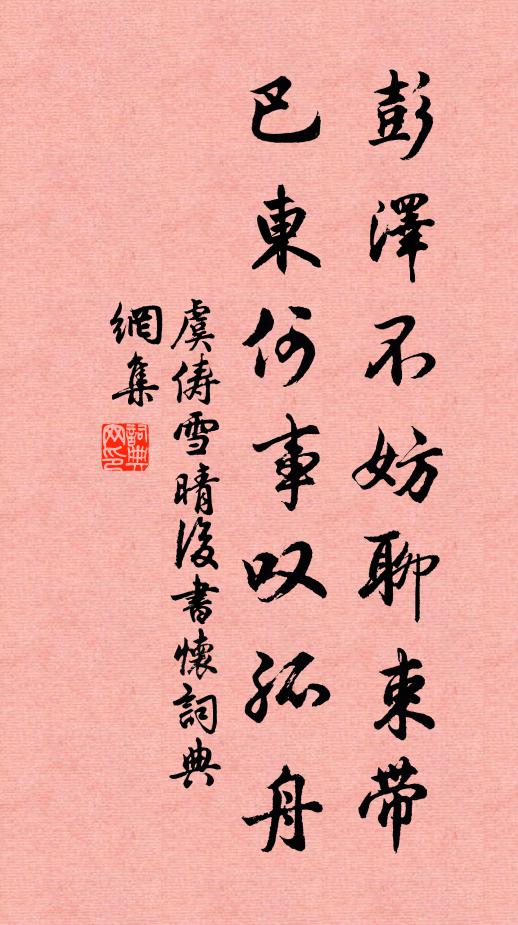 彭澤不妨聊束帶
巴東何事叹孤舟
虞俦雪晴後書懷詞典
網集
詞典
网印